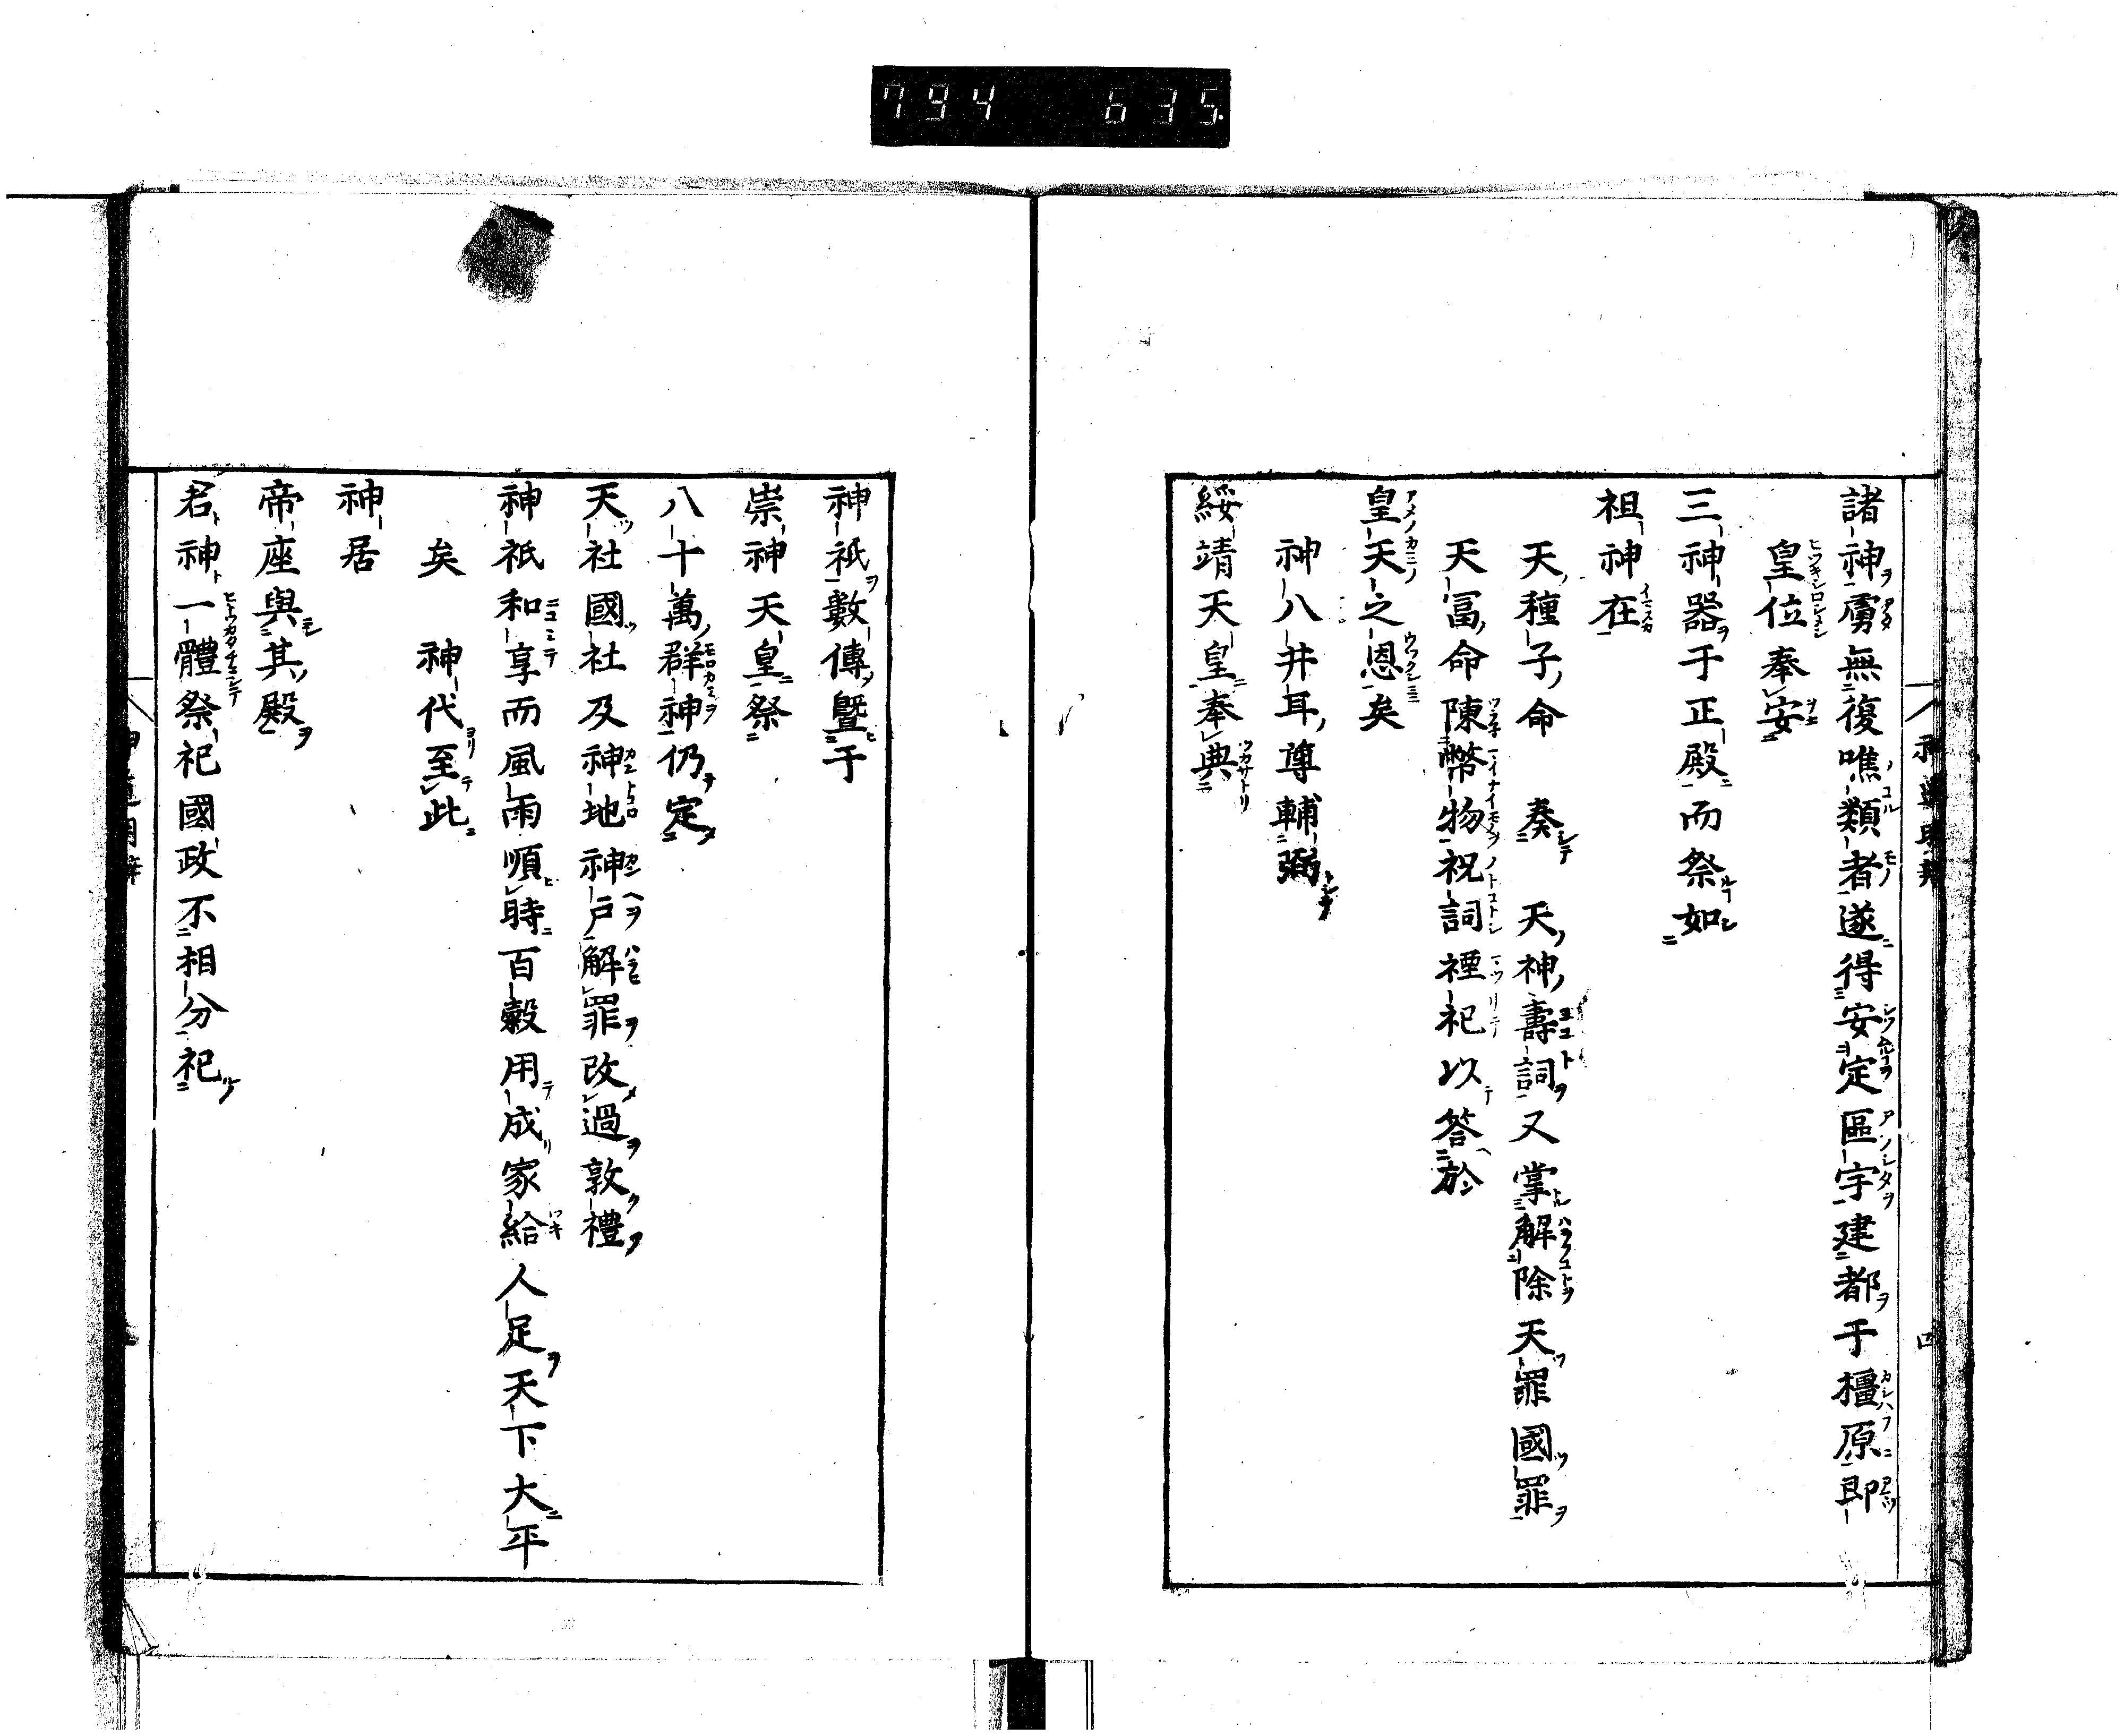 794 635.
諸神虜無復噍類者遂得安定區宇建都于橿原即
皇位奉安
三神器于正殿而祭如
祖神在
天種子命 奏 天神壽詞又掌解除天罪國罪
天冨命陳幣物祝詞禋祀以答於
皇天之恩矣
神八井耳尊輔弼
綏靖天皇奉典
神祇數傳曁于
崇神天皇祭
八十萬群神仍定
天社國社及神地神戸解罪改過敦禮
神祇和享而風雨順時百穀用成家給人足天下大平
矣 神代至此
神居
帝座與其殿
君神一體祭祀國政不相分祀